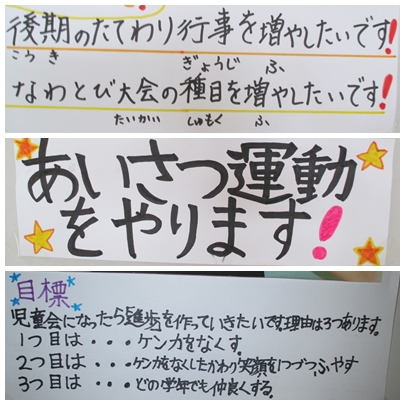 後期のたてわり行事を増やしたいです!
こうき ぎょうじ ふ
なわとび大会の種目を増やしたいです!
たいかい しゅもく ふ
あいさつ運動
をやります!
目標
児童会になったら進歩を作っていきたいです。理由は3つあります。
1つ目は・・・ケンカをなくす。
2つ目は・・・ケンカをなくしたかわり笑顔を1つづつふやす
3つ目は・・・どの学年でも仲良くする。